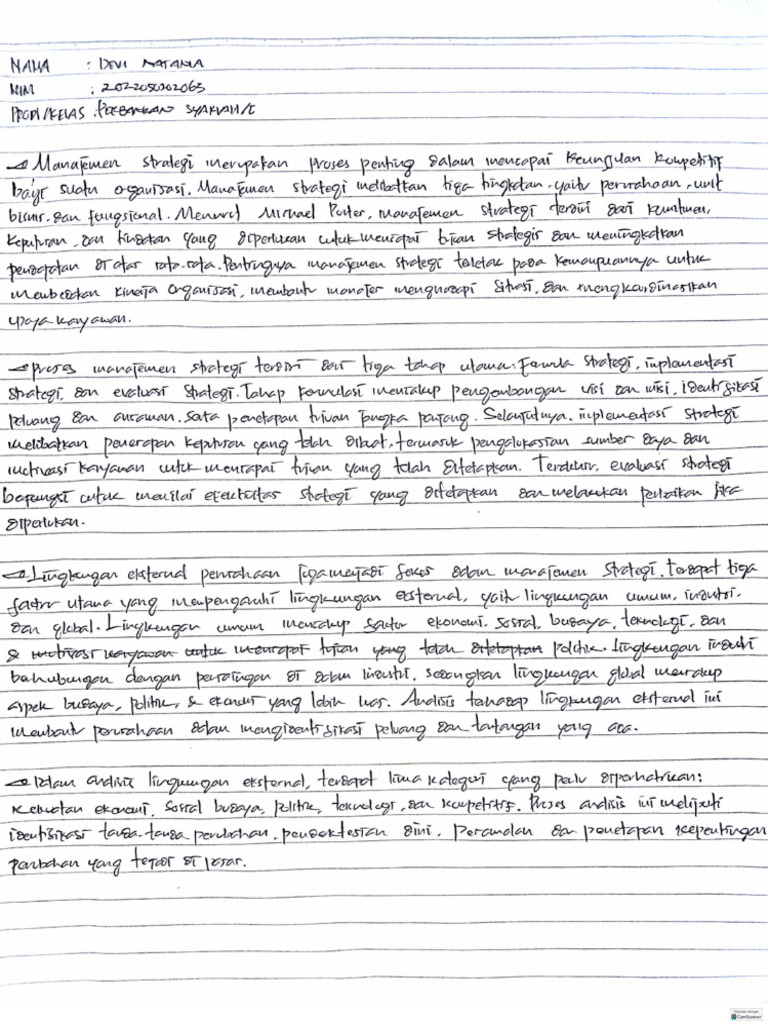 NAMA : DEVI NATANIA
NIM : 2022050202063
PRODI/KELAS : PERBANKAN SYARIAH/C
Manajemen strategi merupakan proses penting dalam mencapai keunggulan kompetitif
bagi suatu organisasi. Manajemen strategi melibatkan tiga tingkatan, yaitu perusahaan, unit
bisnis, dan fungsional. Menurut Michael Porter, manajemen strategi terdiri dari komitmen,
keputusan, dan tindakan yang diperlukan untuk mencapai tujuan strategis dan meningkatkan
pendapatan di atas rata-rata. Pentingnya manajemen strategi terletak pada kemampuannya untuk
membedakan kinerja organisasi, membantu manajer menghadapi situasi, dan mengkoordinasikan
upaya karyawan.
Proses manajemen strategi terdiri dari tiga tahap utama: Formula strategi, implementasi
strategi, dan evaluasi strategi. Tahap formulasi mencakup pengembangan visi dan misi, identifikasi
peluang dan ancaman, serta penetapan tujuan jangka panjang. Selanjutnya, implementasi strategi
melibatkan penerapan keputusan yang telah dibuat, termasuk pengalokasian sumber daya dan
motivasi karyawan untuk mencapai tujuan yang telah ditetapkan. Terakhir, evaluasi strategi
berfungsi untuk menilai efektivitas strategi yang ditetapkan dan melakukan perbaikan jika
diperlukan.
Lingkungan eksternal perusahaan juga menjadi fokus dalam manajemen strategi. Terdapat tiga
faktor utama yang mempengaruhi lingkungan eksternal, yaitu lingkungan umum, industri,
dan global. Lingkungan umum mencakup faktor ekonomi, sosial, budaya, teknologi, dan
& motivasi karyawan untuk mencapai tujuan yang telah ditetapkan politik. Lingkungan industri
berhubungan dengan persaingan di dalam industri, sedangkan lingkungan global mencakup
aspek budaya, politik, & ekonomi yang lebih luas. Analisis terhadap lingkungan eksternal ini
membantu perusahaan dalam mengidentifikasi peluang dan tantangan yang ada.
Dalam analisis lingkungan eksternal, terdapat lima kategori yang perlu diperhatikan:
kekuatan ekonomi, sosial budaya, politik, teknologi, dan kompetitif. Proses analisis ini meliputi
identifikasi tanda-tanda perubahan, pendeteksian dini, peramalan dan penetapan kepentingan
perubahan yang terjadi di pasar.
CamScanner